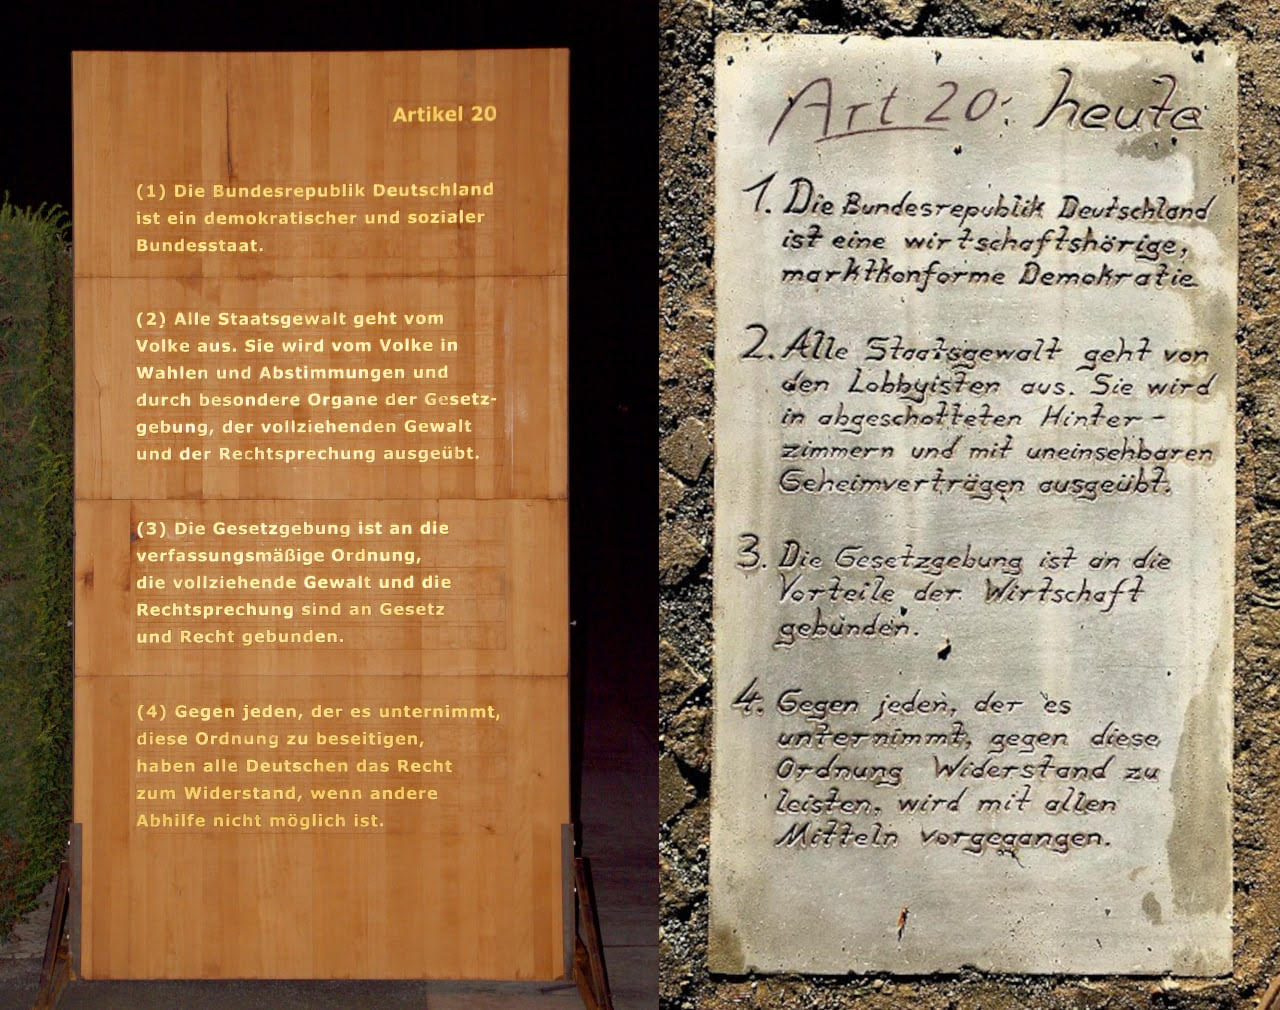 Artikel 20
(1) Die Bundesrepublik Deutschland
ist ein demokratischer und sozialer
Bundesstaat.
(2) Alle Staatsgewalt geht vom
Volke aus. Sie wird vom Volke in
Wahlen und Abstimmungen und
durch besondere Organe der Gesetz-
gebung, der vollziehenden Gewalt
und der Rechtsprechung ausgeübt.
(3) Die Gesetzgebung ist an die
verfassungsmäßige Ordnung,
die vollziehende Gewalt und die
Rechtsprechung sind an Gesetz
und Recht gebunden.
(4) Gegen jeden, der es unternimmt,
diese Ordnung zu beseitigen,
haben alle Deutschen das Recht
zum Widerstand, wenn andere
Abhilfe nicht möglich ist.
Art 20: heute
1. Die Bundesrepublik Deutschland
ist eine wirtschaftshörige,
marktkonforme Demokratie
2. Alle Staatsgewalt geht von
den Lobbyisten aus. Sie wird
in abgeschotteten Hinter-
zimmern und mit uneinsehbaren
Geheimverträgen ausgeübt.
3. Die Gesetzgebung ist an die
Vorteile der Wirtschaft
gebunden.
4. Gegen jeden, der es
unternimmt, gegen diese
Ordnung Widerstand zu
leisten, wird mit allen
Mitteln vorgegangen.